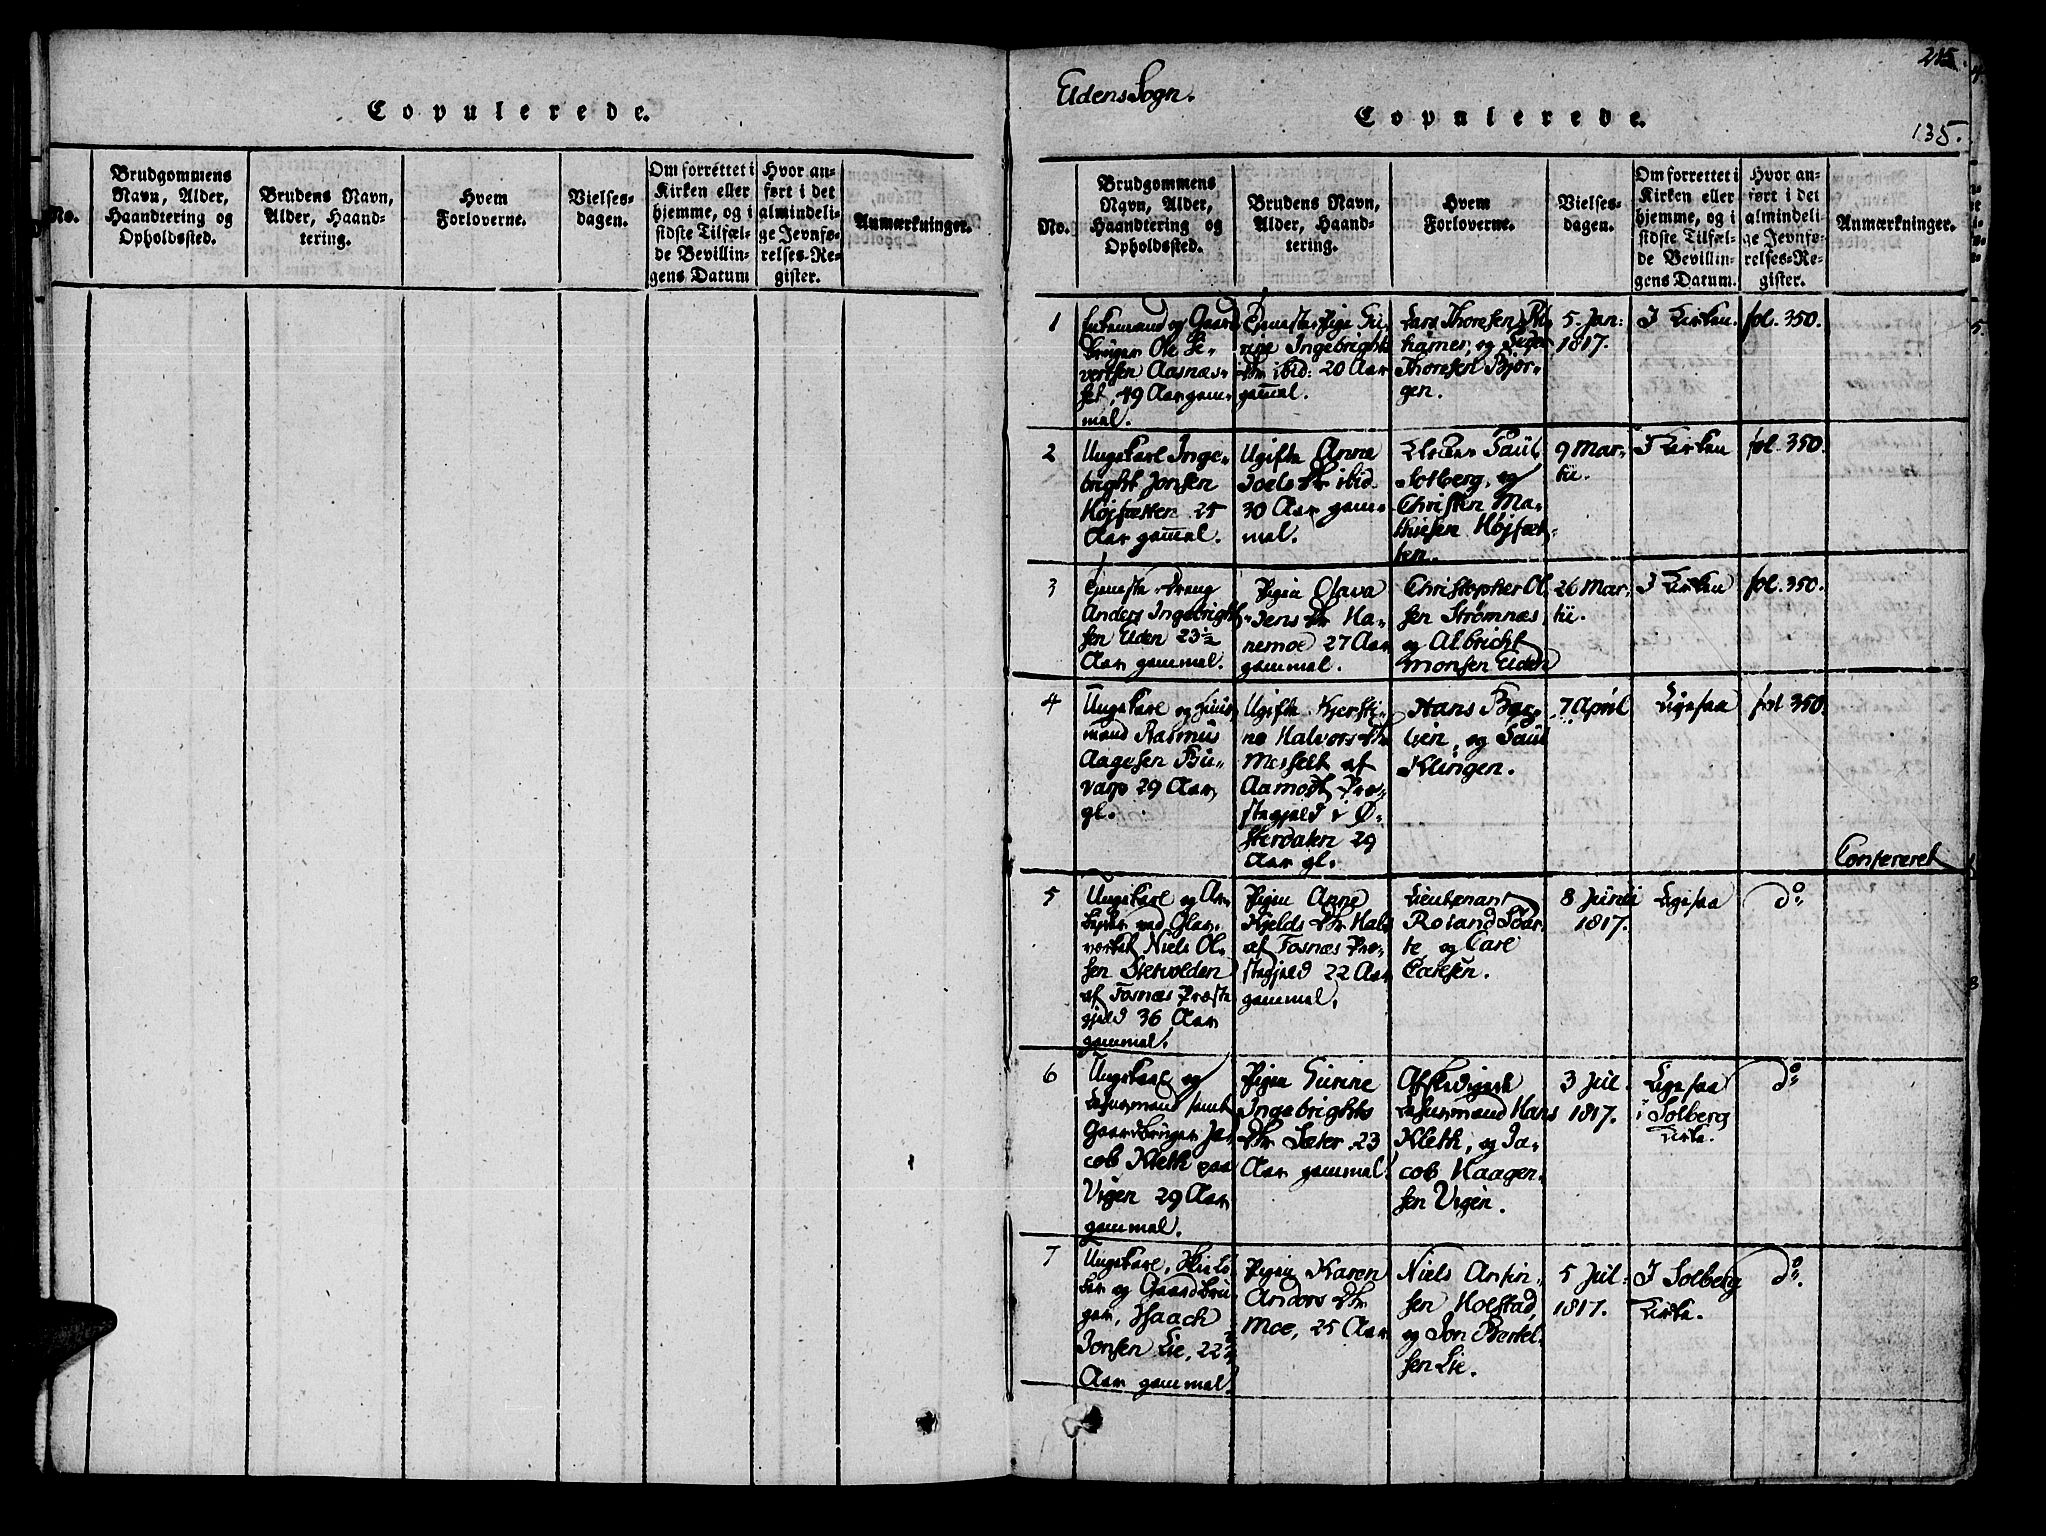 Copulerede.
No.
Brudgommens
Navn, Alder,
Haandtering og
Opholdssted.
Brudens Navn,
Alder, Haand-
tering.
Hvem
Forloverne.
Vielses-
dagen.
Om forrettet i
Kirken eller
hjemme, og i
sidste Tilfæl-
de Bevillin-
gens Datum
Hvor an-
ført i det
almindeli-
ge Jevnfø-
relses-Re-
gister.
Anmærkninger.
Udens Sogn.
Copulerede.
215.
135.
No.
Brudgommens
Navn, Alder,
Haandtering og
Opholdssted.
Brudens Navn,
Alder, Haand-
tering.
Hvem
Forloverne.
Vielses-
dagen.
Om forrettet i
Kirken eller
hjemme, og i
sidste Tilfæl-
de Bevillin-
gens Datum.
Hvor an-
ført i det
almindeli-
ge Jevnfø-
relses-Re-
gister.
Anmærkninger.
1
Enkemand og Gaard
bruger Ole Si-
vertsen Aasnæs-
set, 49 Aar gam-
mel.
Tjeneste Pige Gu-
rine Ingebrights
Dtr ibid: 20 Aar
gammel.
Lars Thoresen
hamer, og
Thoresen Bjør-
gen.
5. Jan:
1817.
I Kirken.
fol. 350.
2
Ungekarl Inge-
bright Jonsen
Højfætten 25
Aar gammel.
Ugifte Anne
Joels Dtr ibid.
30 Aar gam-
mel.
Paul
Solberg, og
Christen Ma-
thiesen Højfæt-
ten.
9 Mar-
tii.
I Kirken
fol. 350.
3
Tjeneste Dreng
Anders Ingebright-
sen Uden 23½
Aar gammel.
Pigen Olava
Jens Dtr Ha-
nemoe 27 Aar
gammel.
Christopher Ol-
sen Strømnæs,
og Albricht
Monsen Uden
26 Mar-
tii.
I Kirken
fol. 350.
4
Ungekarl og Huus
mand Rasmus
Aagesen Bu-
varp 29 Aar
gl.
Ugifte Kjersti-
ne Halvors Dtr
Messelt af
Aamodt Præ-
stegjeld i Ø-
sterdalen 29
Aar gl.
Hans Bæk-
lien, og Paul
Klingen.
7 April
Ligesaa
fol 350.
Confereret
5
Ungekarl og Ar-
beider ved Glas-
værket Niels Ol-
sen
af Fosnæs Præste
gjeld 36 Aar
gammel.
Pigen Anne
Kjelds Dtr Hals
af Fosnæs Præ-
stegjeld 22 Aar
gammel.
Lieutenant
Roland
og Carl
Carlsen.
8 Junii
1817.
Ligesaa
do
6
Ungekarl og
Lehnsmand samt
Gaardbruger Ja-
cob Kleth paa
Vigen 29 Aar
gammel.
Pigen Gurine
Ingebrights
Dtr Sæter 23
Aar gammel.
Afskedigede
Lehnsmand Hans
Kleth, og Ja-
cob Haagen-
sen Vigen.
3 Jul.
1817.
Ligesaa
i Solberg
Kirke.
do
7
Ungekarl, Skielø-
ber og Gaardbru-
ger, Isaach
Jonsen Lie, 22¾
Aar gammel.
Pigen Karen
Anders Dtr
Moe, 25 Aar
Niels Anfin-
sen Holstad,
og Jon Bertel-
sen Lie.
5 Jul:
1817.
I Solberg
Kirke.
do